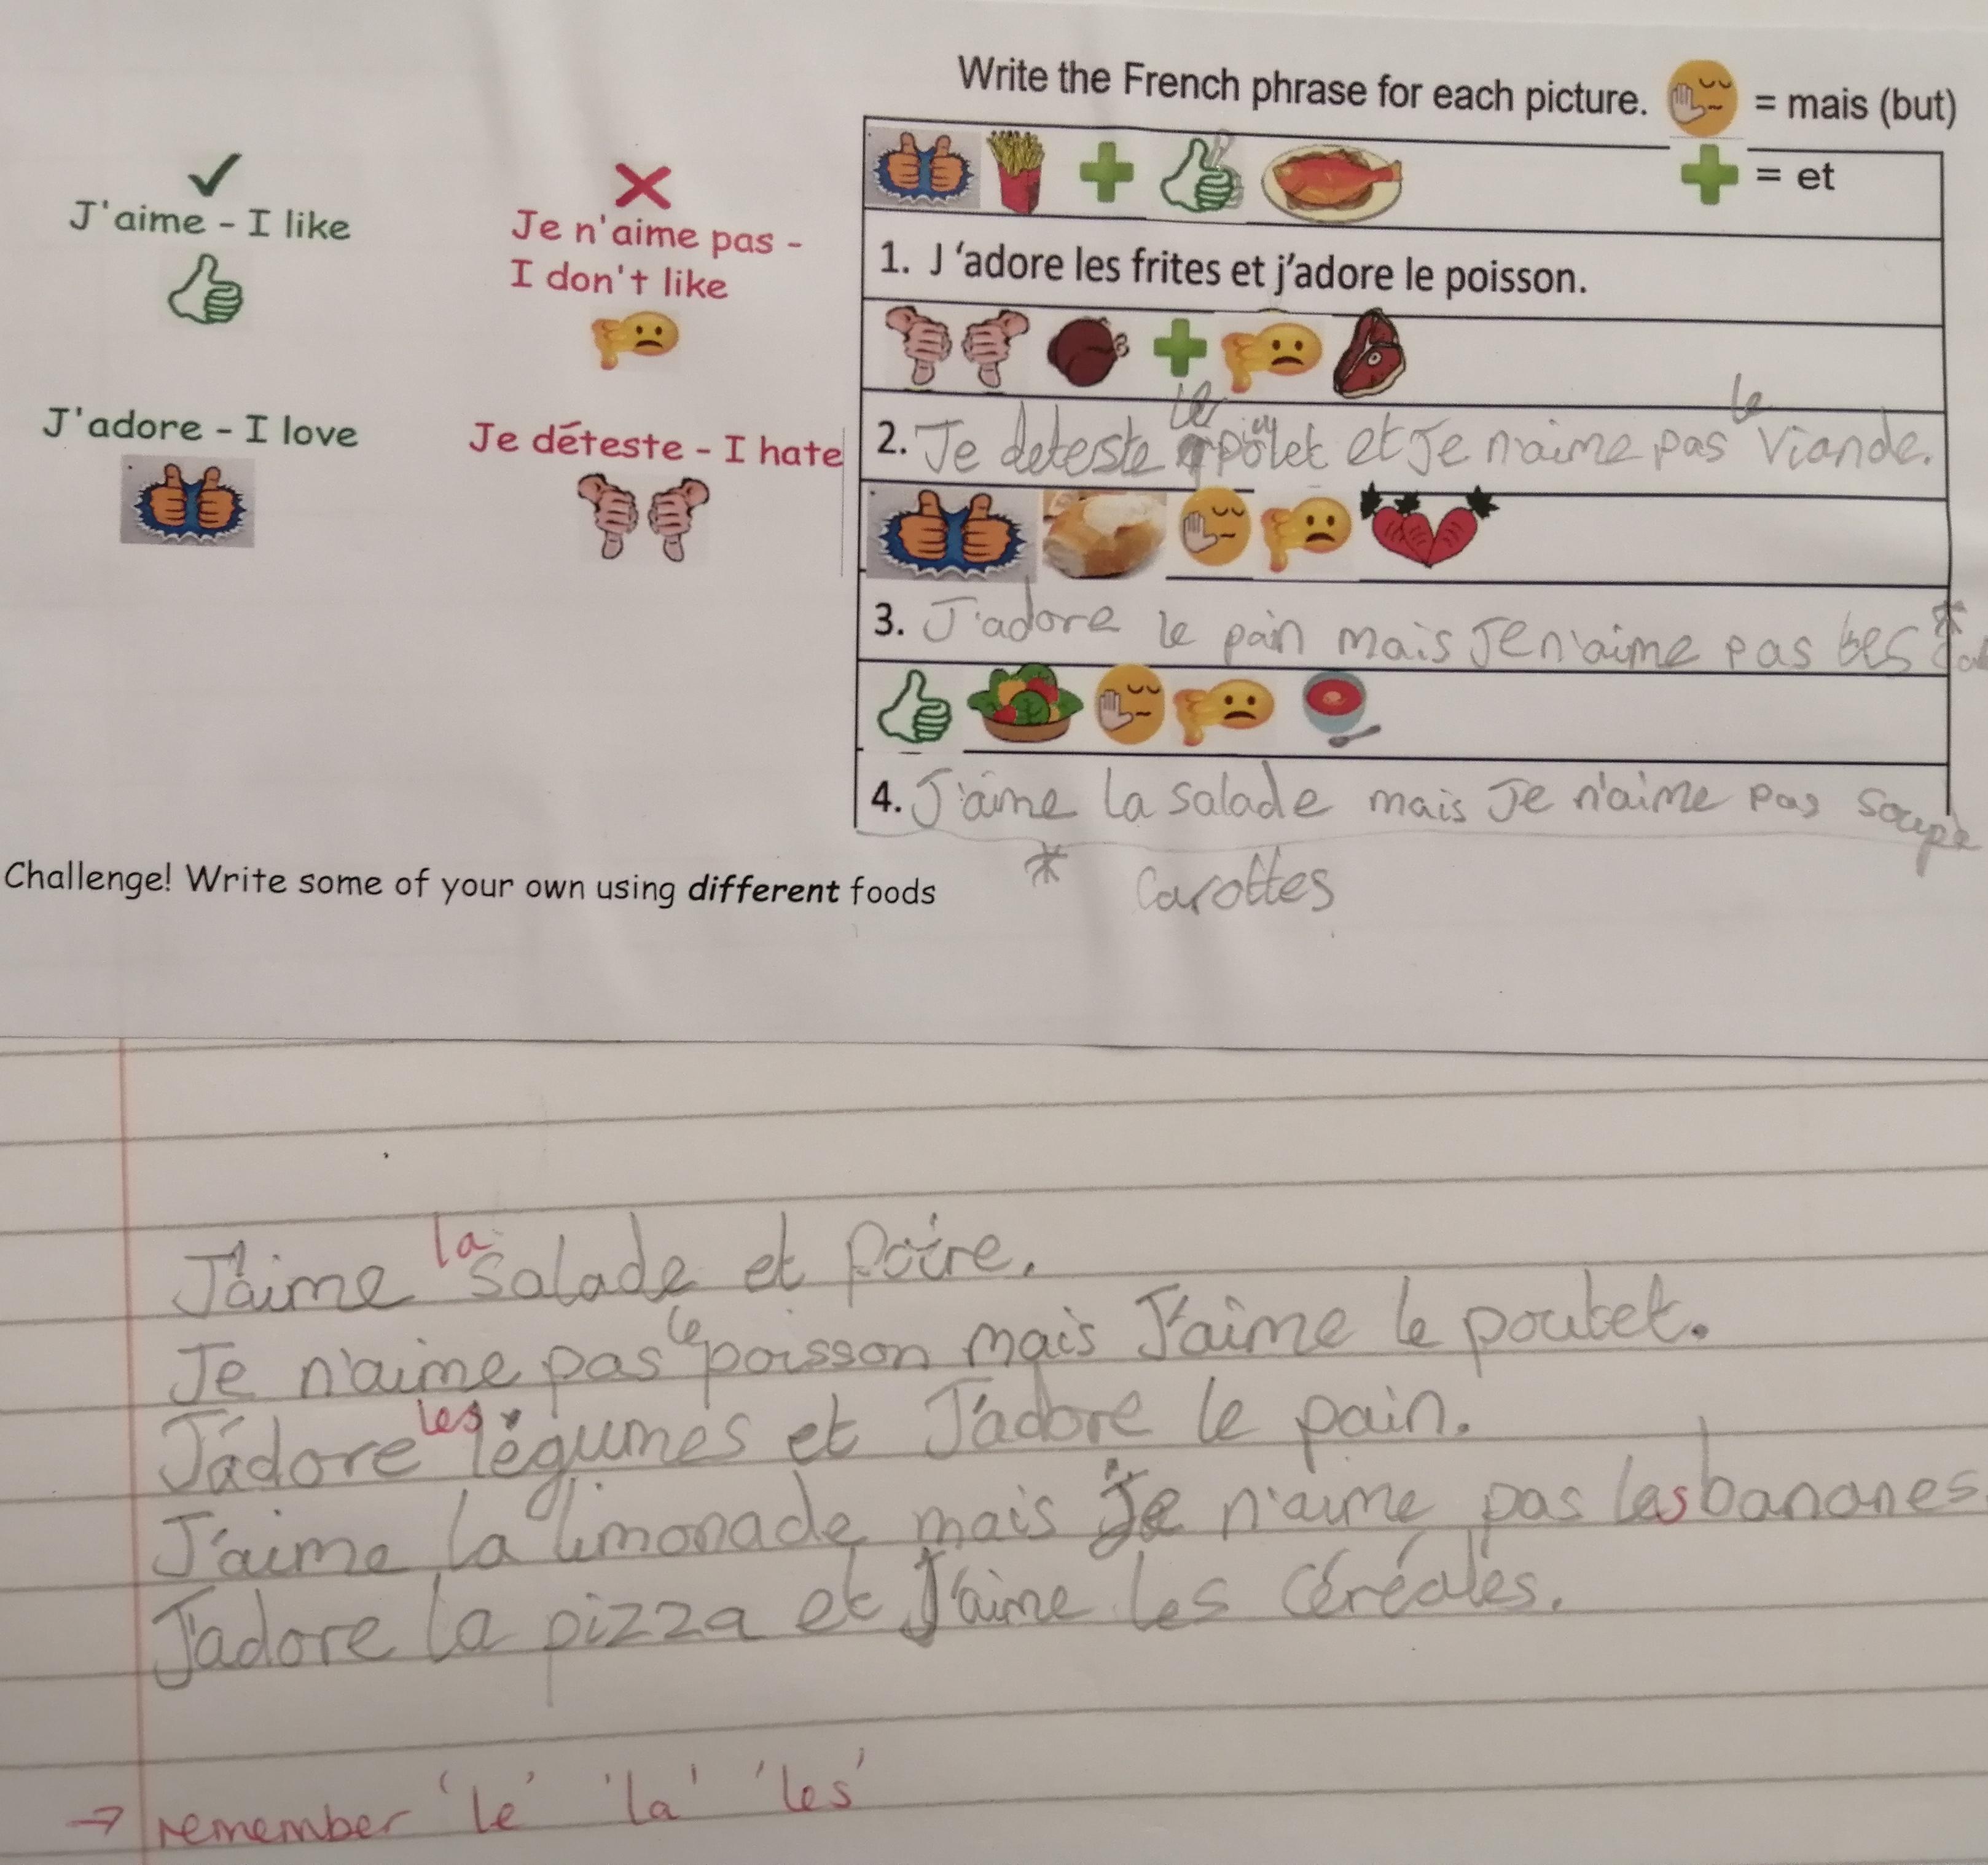 Write the French phrase for each picture. = mais (but)
= et
J'aime - I like
Je n'aime pas -
I don't like
J'adore - I love
Je déteste - I hate
1. J ‘adore les frites et j’adore le poisson.
le le
2. Je deteste et Je n'aime pas viande.
3. J'adore le pain mais Je n'aime pas les *
4. J'aime la salade mais Je n'aime pas soupe
Challenge! Write some of your own using different foods
* Carottes
la
J'aime salade et poire.
le
Je n'aime pas poisson mais J'aime le poulet.
les
J'adore légumes et J'adore le pain.
J'aime la limonade mais Je n'aime pas les bananes.
J'adore la pizza et J'aime les céréales.
→ remember 'le' 'la' 'les'